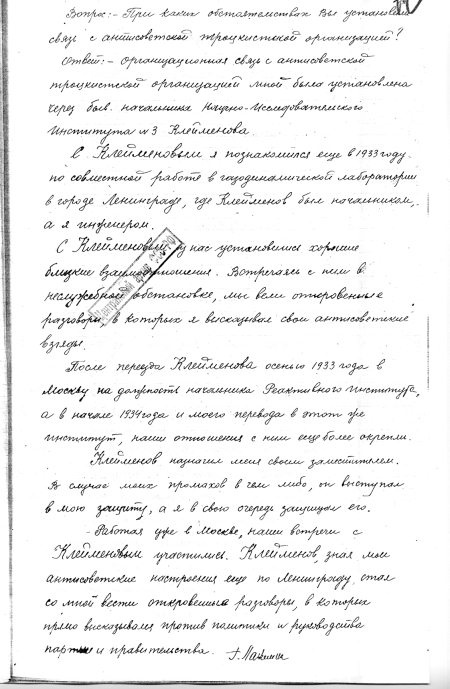 Вопрос:- При каких обстоятельствах Вы установили
связь с антисоветской троцкистской организацией?
Ответ:- организационная связь с антисоветской
троцкистской организацией мной была установлена
через быв. начальника Научно-Исследовательского
Института №3 Клейменова.
С Клейменовым я познакомился еще в 1933 году
по совместной работе в газодинамической лаборатории
в городе Ленинграде, где Клейменов был начальником,
а я инженером.
С Клейменовым у нас установились хорошие
близкие взаимоотношения. Встречаясь с ним в
неслужебной обстановке, мы вели откровенные
разговоры, в которых я высказывал свои антисоветские
взгляды.
После переезда Клейменова осенью 1933 года в
Москву на должность начальника Реактивного института,
а в начале 1934 года и моего перевода в этот же
институт, наши отношения с ним еще более окрепли.
Клейменов назначил меня своим заместителем.
В случае моих промахов в чем либо, он выступал
в мою защиту, а я в свою очередь защищал его.
- Работая уже в Москве, наши встречи с
Клейменовым участились. Клейменов, зная мои
антисоветские настроения еще по Ленинграду, стал
со мной вести откровенные разговоры, в которых
прямо высказывался против политики и руководства
партии и правительства.